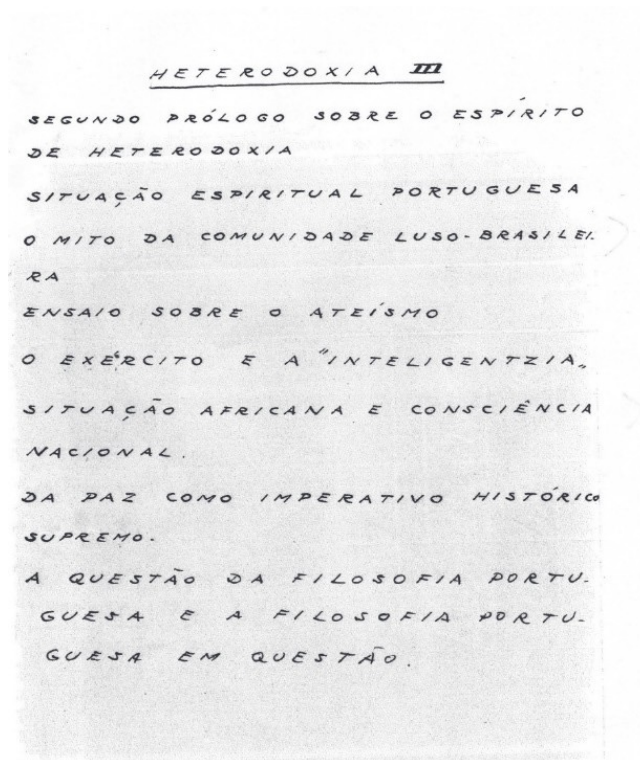 HETERODOXIA III
SEGUNDO PRÓLOGO SOBRE O ESPÍRITO
DE HETERODOXIA
SITUAÇÃO ESPIRITUAL PORTUGUESA
O MITO DA COMUNIDADE LUSO-BRASILEI-
RA
ENSAIO SOBRE O ATEÍSMO
O EXÉRCITO E A "INTELIGENTZIA„
SITUAÇÃO AFRICANA E CONSCIÊNCIA
NACIONAL.
DA PAZ COMO IMPERATIVO HISTÓRICO
SUPREMO.
A QUESTÃO DA FILOSOFIA PORTU-
GUESA E A FILOSOFIA PORTU-
GUESA EM QUESTÃO.